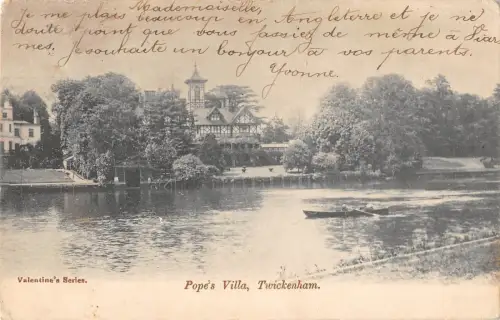 Mademoiselle,
Je me plais beaucoup en Angleterre et je ne
doute point que vous fassiez de même à
mes. Je souhaite un bonjour à vos parents.
Yvonne.
Valentine's Series.
Pope's Villa, Twickenham.